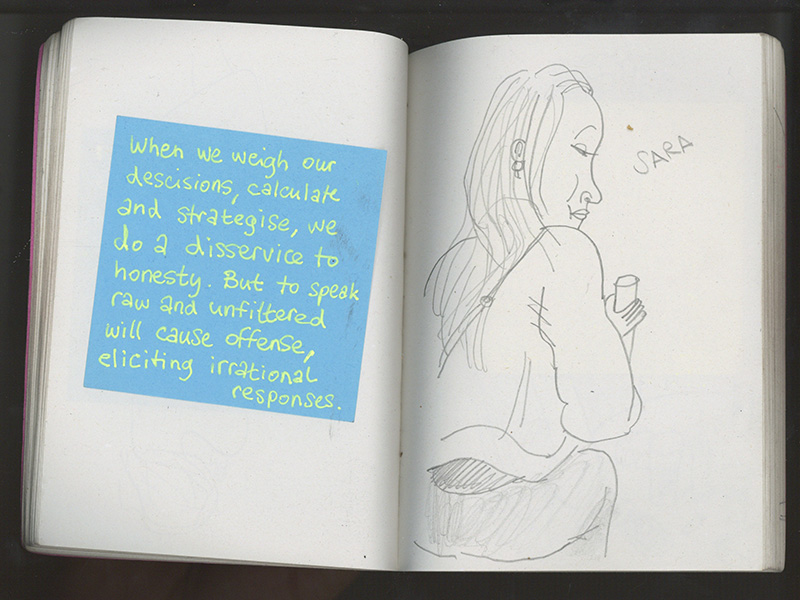 When we weigh our
descisions, calculate
and strategise, we
do a disservice to
honesty. But to speak
raw and unfiltered
will cause offense,
eliciting irrational
responses.
SARA